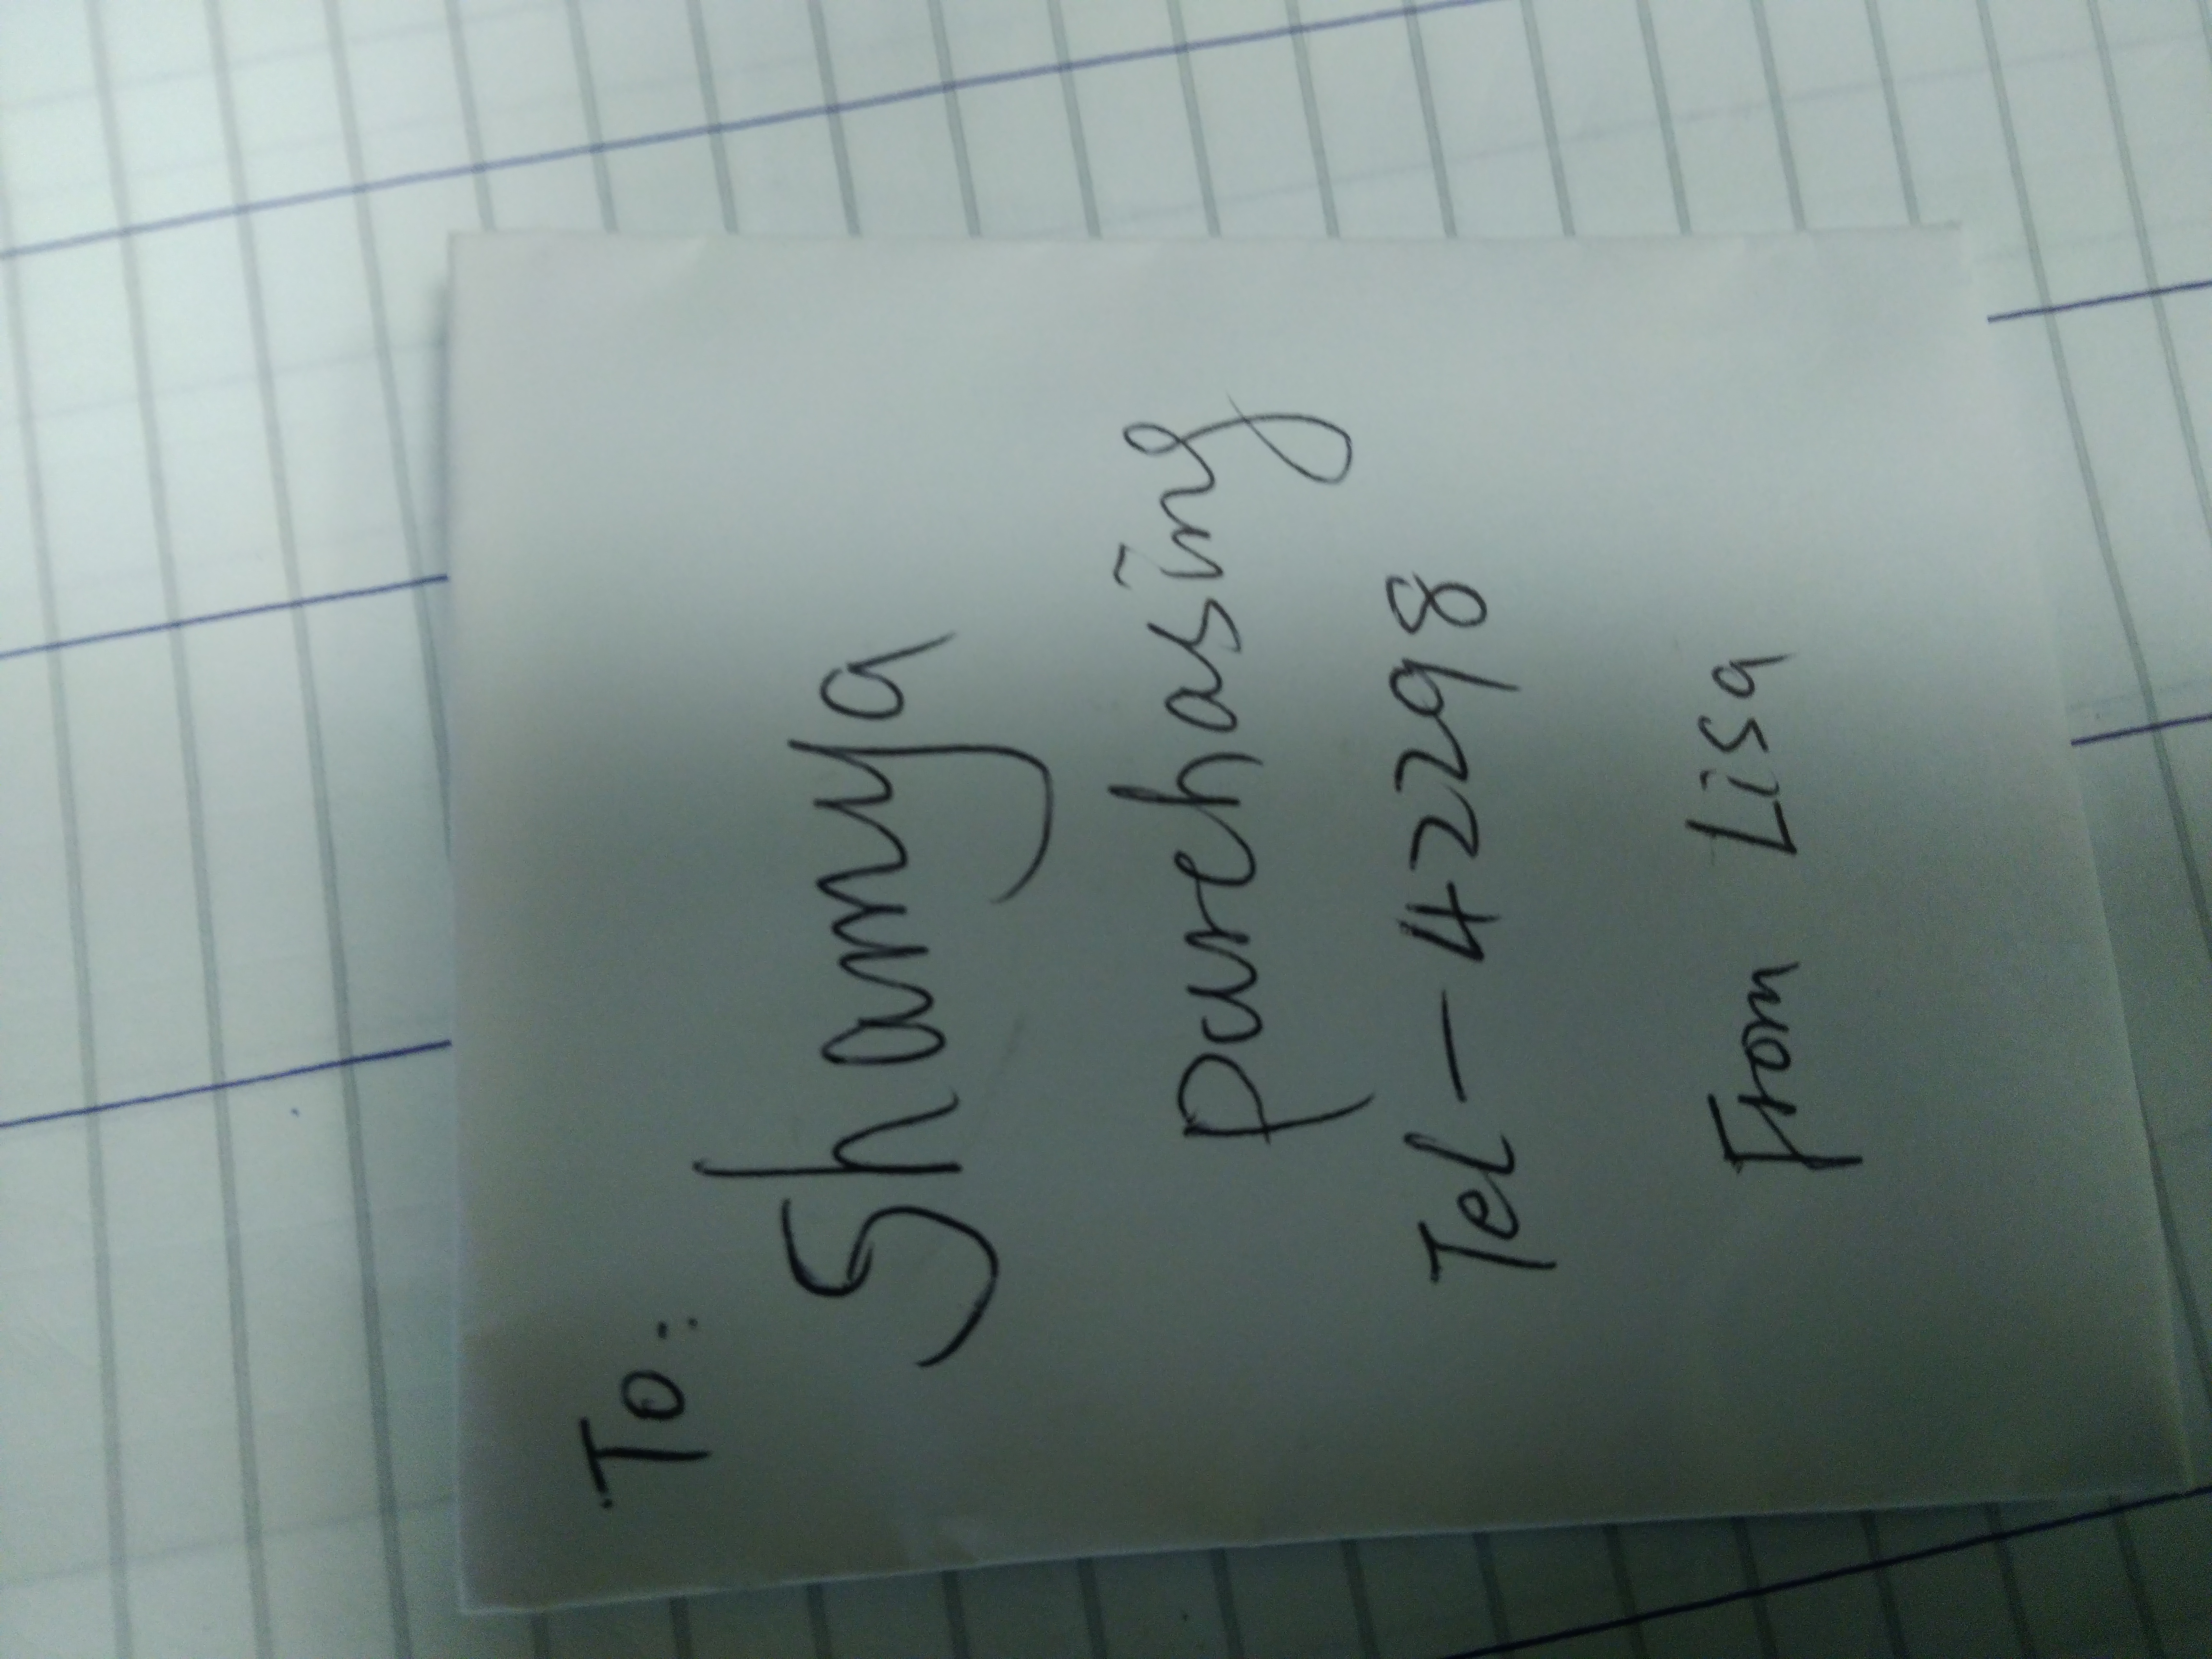 To:
Shamya
purchasing
Tel - 4298
From Lisa